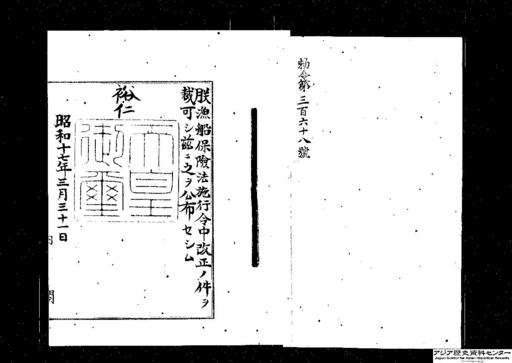 勅令第三百六十八號
朕漁船保險法施行令中改正ノ件ヲ
裁可シ茲ニ之ヲ公布セシム
裕仁
天皇
御璽
昭和十七年三月三十一日
アジア歴史資料センター
Japan Center for Asian Historical Records